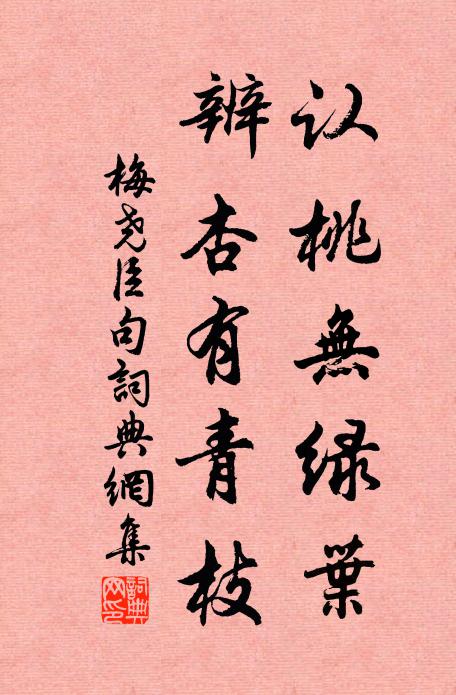 认桃無绿葉
辨杏有青枝
梅尧臣句詞典網集
詞典網印